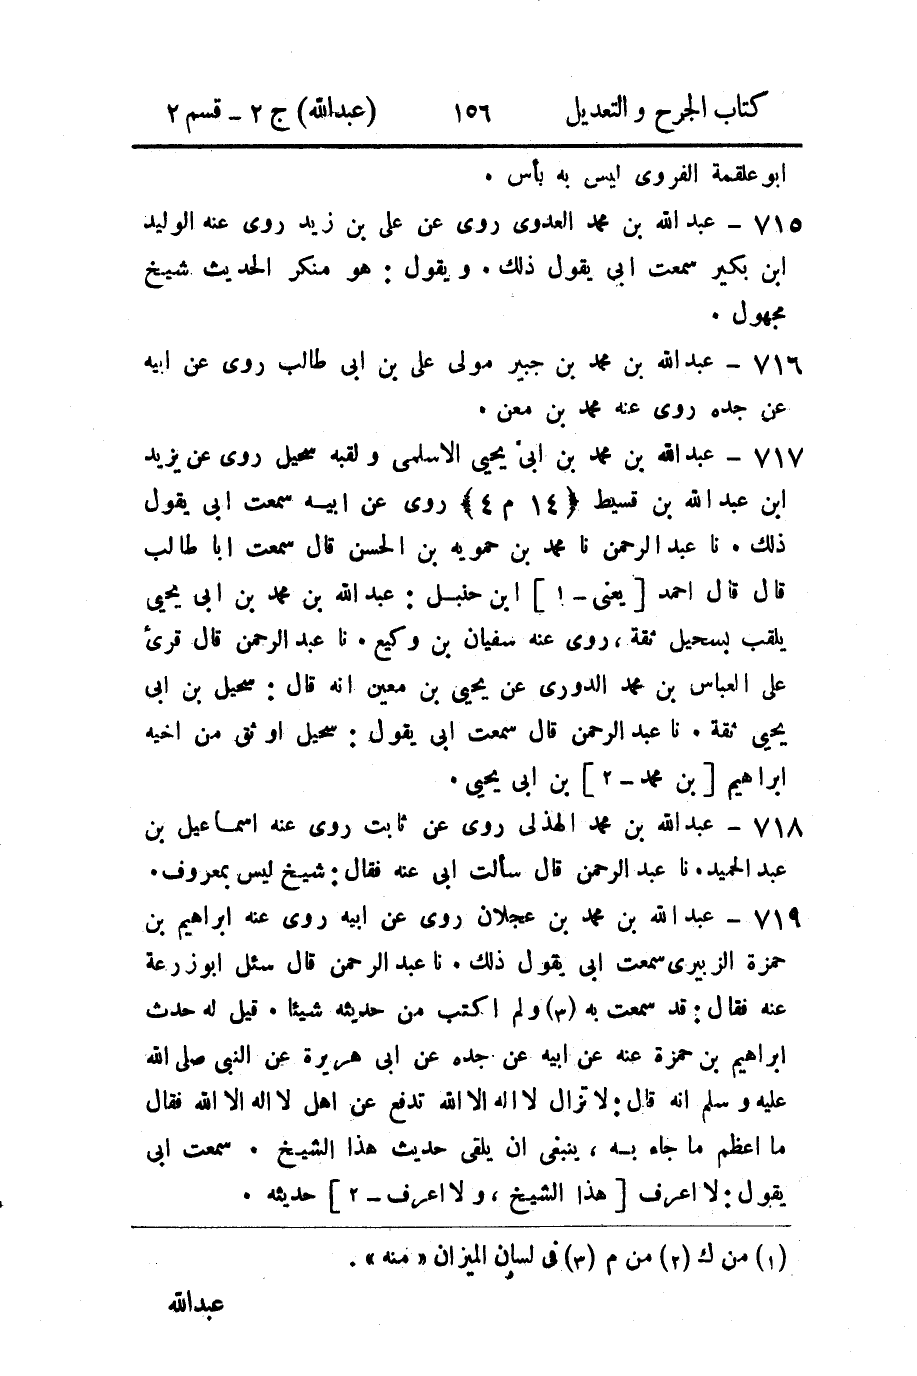 كتاب الجرح و التعديل ١٥٦ (عبدالله) ج ٢ ـ قسم ٢
ابو علقمة الفروى ليس به بأس ٠
٧١٥ ـ عبد الله بن محمد العدوى روى عن على بن زيد روى عنه الوليد
ابن بكير سمعت ابي يقول ذلك ٠ ويقول : هو منكر الحديث شيخ
مجهول ٠
٧١٦ ـ عبد الله بن محمد بن جبير مولى على بن ابى طالب روى عن ابيه
عن جده روى عنه محمد بن معن ٠
٧١٧ ـ عبدالله بن محمد بن ابى يحيى الاسلمى ولقبه سحيل روى عن يزيد
ابن عبد الله بن قسيط ﴿١٤ م ٤﴾ روى عن ابيه سمعت ابي يقول
ذلك ٠ نا عبد الرحمن نا محمد بن حمويه بن الحسن قال سمعت ابا طالب
قال قال احمد [يعنى ـ ١] ابن حنبل : عبد الله بن محمد بن ابى يحيى
يلقب بسحيل ثقة ، روى عنه سفيان بن وكيع ٠ نا عبد الرحمن قال قرئ
على العباس بن محمد الدورى عن يحيى بن معين انه قال : سحيل بن ابى
يحيى ثقة ٠ نا عبد الرحمن قال سمعت ابى يقول : سحيل اوثق من اخيه
ابراهيم [بن محمد ـ ٢] بن ابى يحيى ٠
٧١٨ ـ عبد الله بن محمد الهذلى روى عن ثابت روى عنه اسماعيل بن
عبد الحميد ٠ نا عبد الرحمن قال سألت ابى عنه فقال : شيخ ليس بمعروف ٠
٧١٩ ـ عبد الله بن محمد بن عجلان روى عن ابيه روى عنه ابراهيم بن
حمزة الزبيرى سمعت ابى يقول ذلك ٠ نا عبد الرحمن قال سئل ابوزرعة
عنه فقال : قد سمعت به (٣) ولم اكتب من حديثه شيئا ٠ قيل له حدث
ابراهيم بن حمزة عنه عن ابيه عن جده عن ابى هريرة عن النبي صلى الله
عليه و سلم انه قال : لا تزال لا اله الا الله تدفع عن اهل لا اله الا الله فقال
ما اعظم ما جاء به ، ينبغى ان يلقى حديث هذا الشيخ ٠ سمعت ابى
يقول : لا اعرف [هذا الشيخ ، و لا اعرف ـ ٢] حديثه ٠
(١) من ك (٢) من م (٣) فى لسان الميزان « منه » .
عبدالله